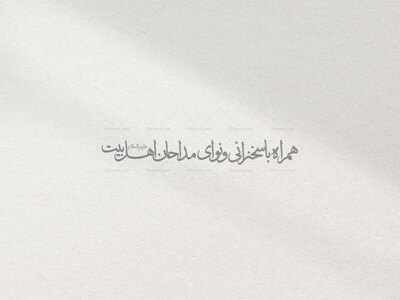 همراه با سخنرانی و نوای مداحان اهل بیت علیهم السلام